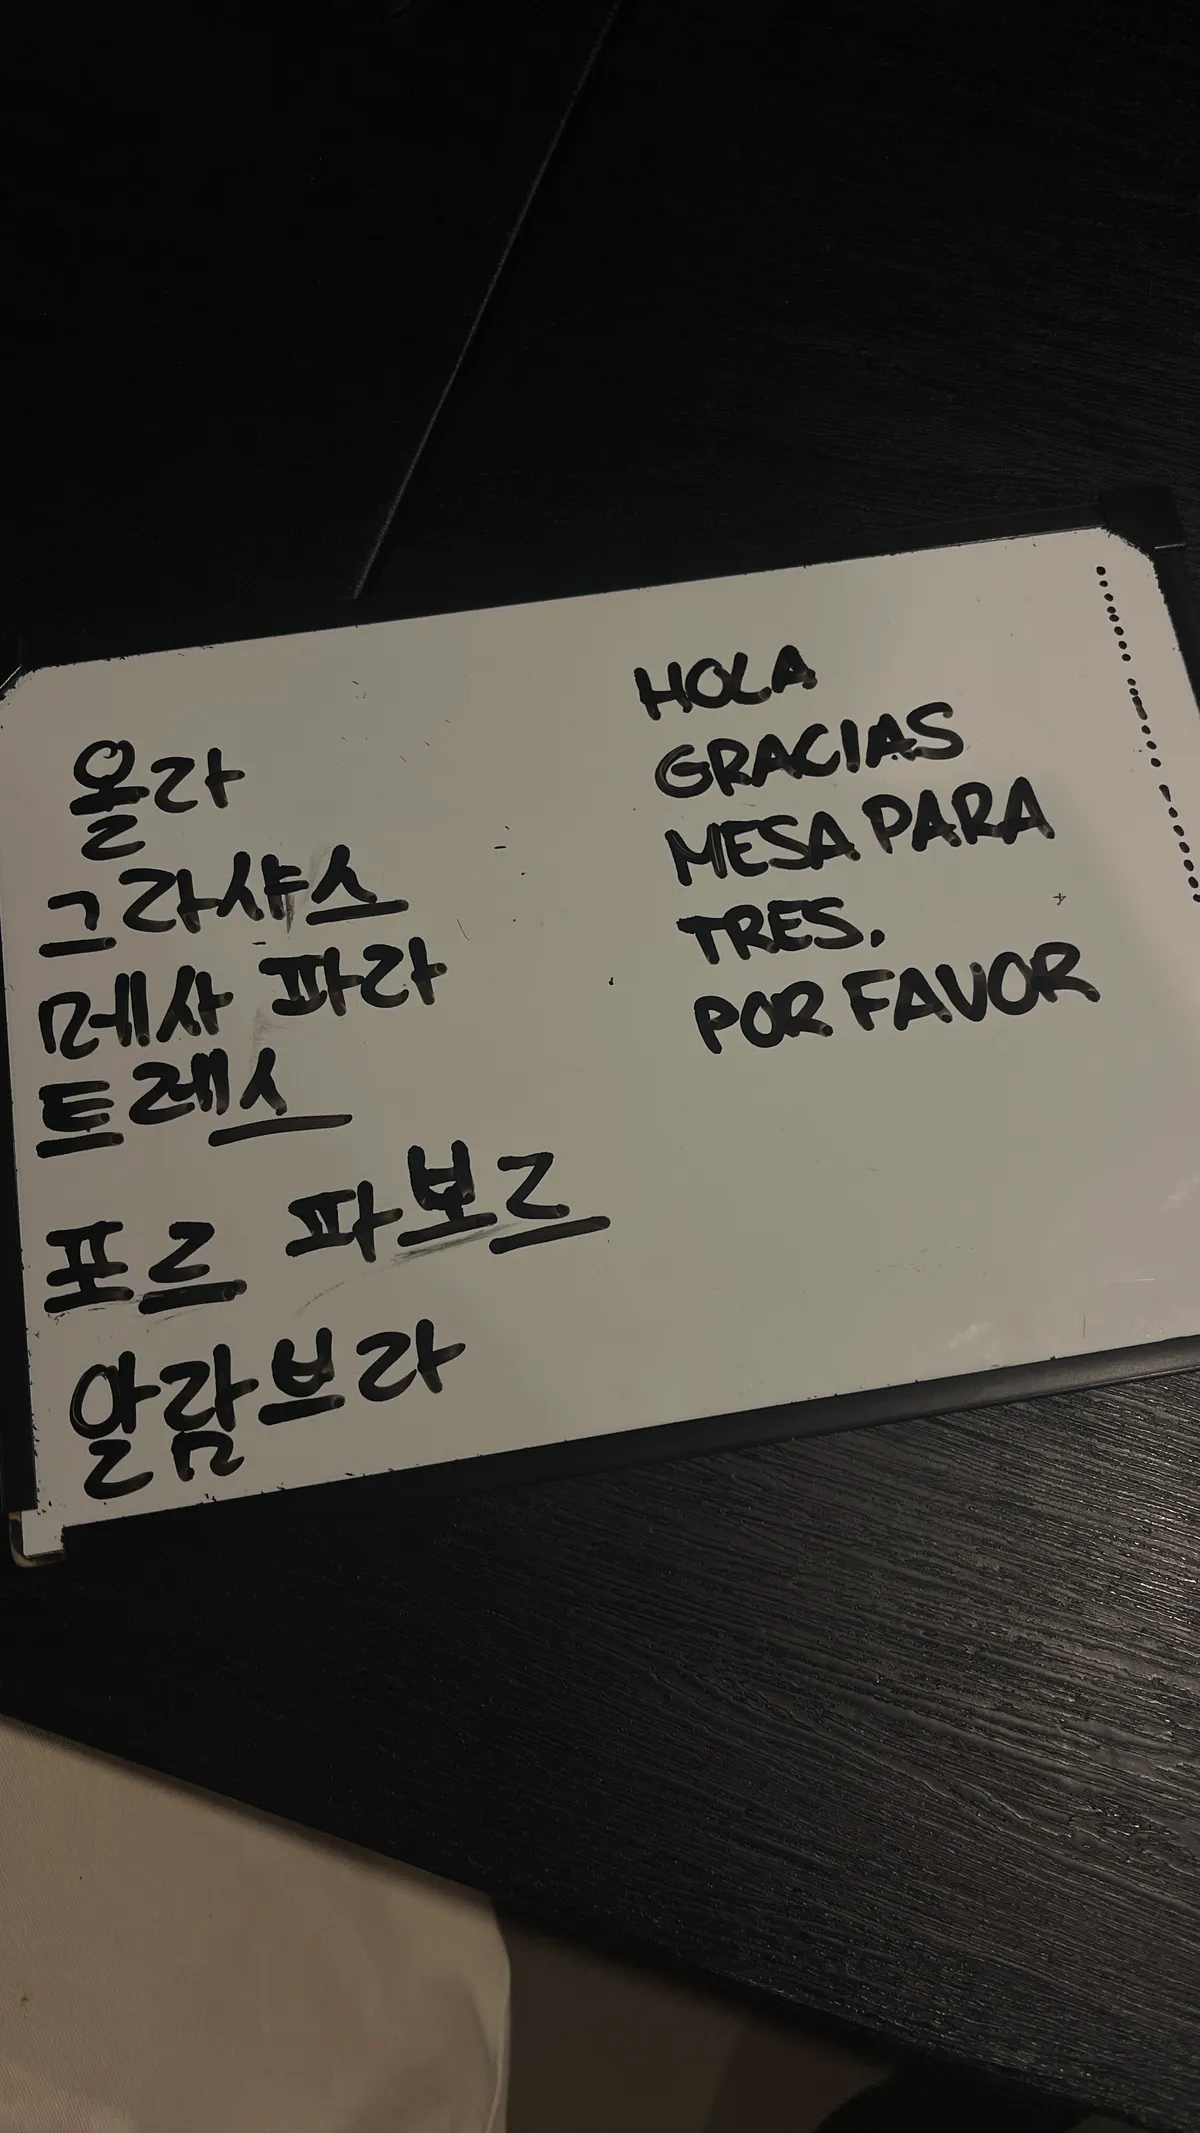 올라
그라샤스
메사 파라
트레스
포르 파보르
알람브라
HOLA
GRACIAS
MESA PARA
TRES.
POR FAVOR